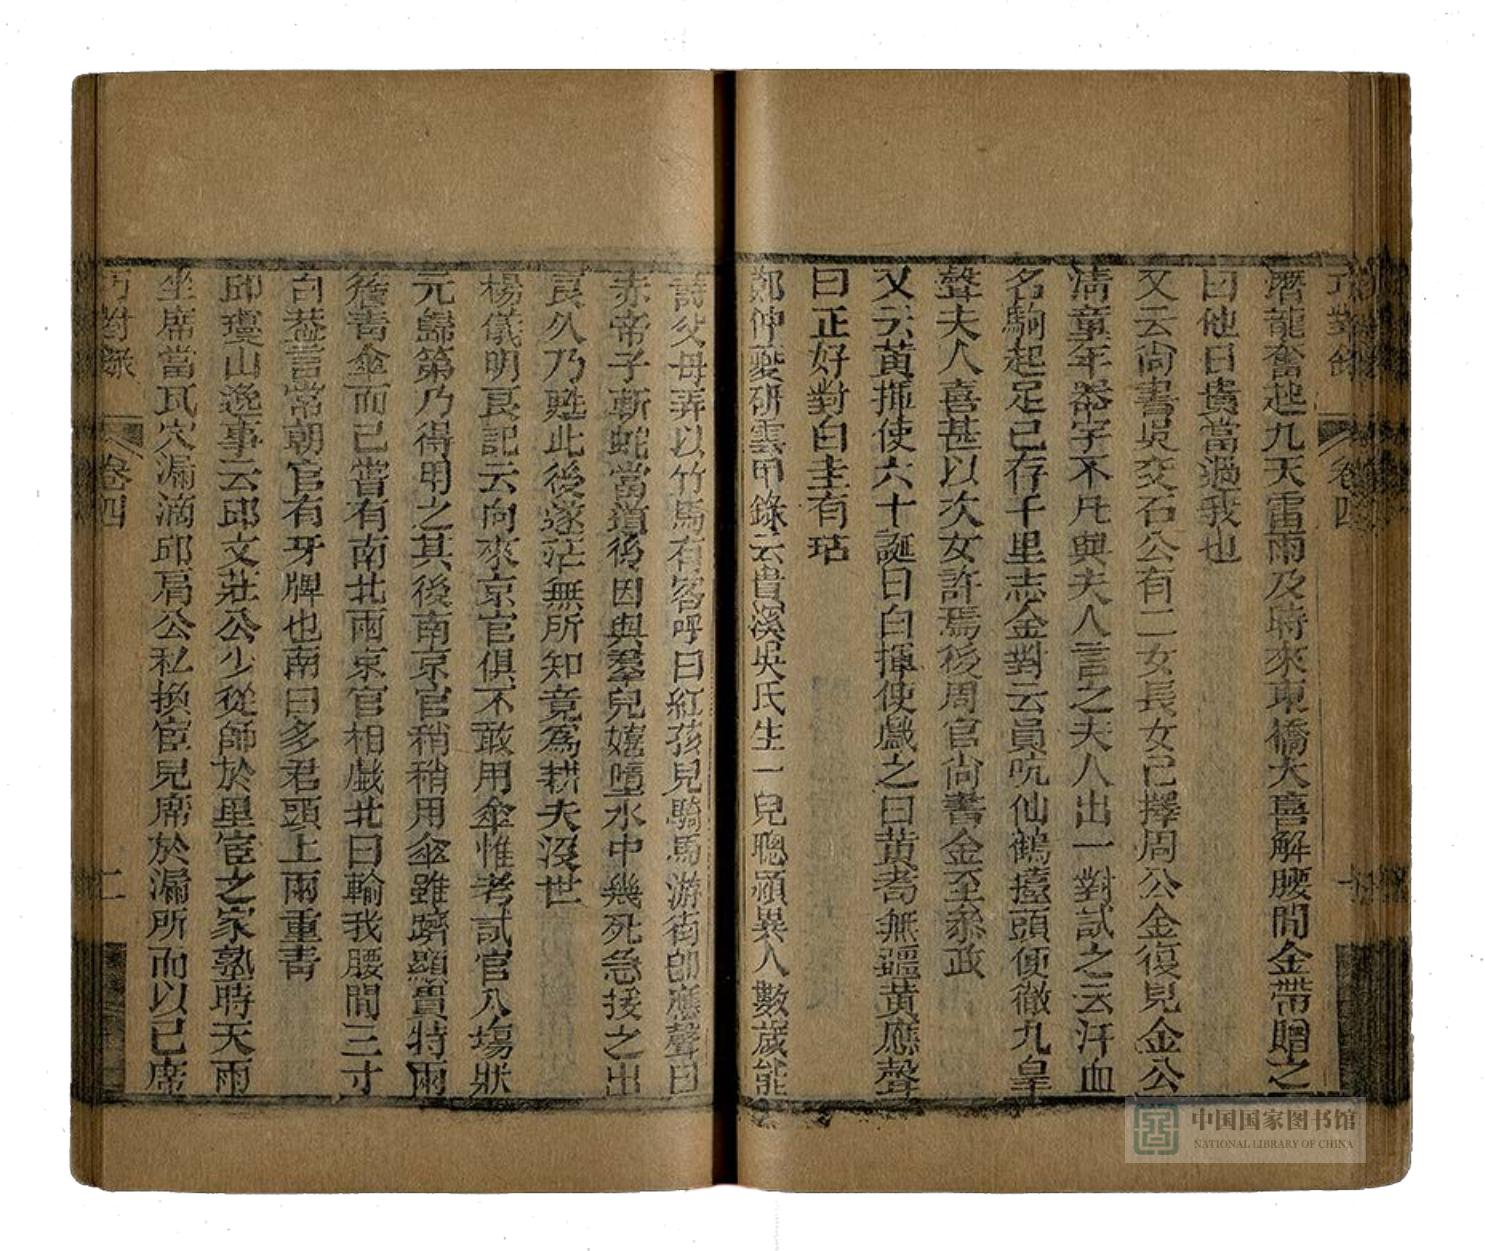 巧對錄
卷四
潛龍奮起九天雷雨及時來東橋大喜解腰間金帶贈之
曰他日貴當過我也
又云尚書吳交石公有二女長女已擇周公金復見金公
淸童年器宇不凡與夫人言之夫人出一對試之云汗血
名駒起足已存千里志金對云員吭仙鶴擡頭便徹九皇
聲夫人喜甚以次女許焉後周官尚書金至叅政
又云黃揮使六十誕日白揮使戲之曰黃耇無疆黃應聲
曰正好對白圭有玷
鄭仲夔硏雲甲錄云貴溪吳氏生一兒聰穎異人數歲能
詩父母弄以竹馬有客呼曰紅孩兒騎馬游街卽應聲曰
赤帝子斬蛇當道後因與羣兒嬉墮水中幾死急拯之出
良久乃甦此後遂茫無所知竟爲耕夫沒世
楊儀明良記云向來京官俱不敢用傘惟考試官入場狀
元歸第乃得用之其後南京官稍稍用傘雖躋顯貴特兩
襜靑傘而已嘗有南北兩京官相戲北曰輸我腰間三寸
白葢言常朝官有牙牌也南曰多君頭上兩重靑
邱瓊山逸事云邱文莊公少從師於里宦之家塾時天雨
坐席當瓦穴漏滴邱肩公私換宦兒席於漏所而以已席
巧對錄
卷四
二
中国国家图书馆
NATIONAL LIBRARY OF CHINA